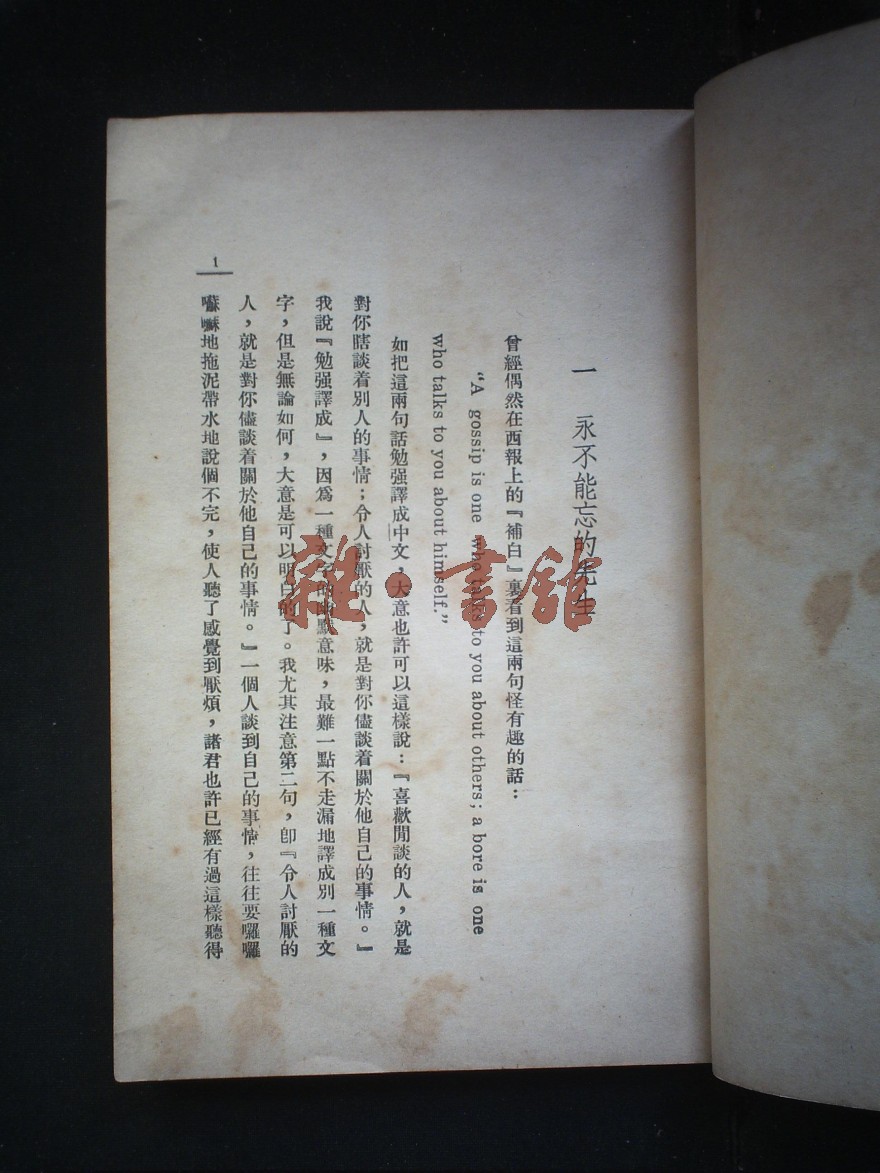 一 永不能忘的先生
曾經偶然在西報上的『補白』裏看到這兩句怪有趣的話：
“A gossip is one who talks to you about others; a bore is one
who talks to you about himself.”
如把這兩句話勉强譯成中文，大意也許可以這樣說：『喜歡閒談的人，就是
對你瞎談着別人的事情；令人討厭的人，就是對你儘談着關於他自己的事情。』
我說『勉强譯成』，因爲一種文字的幽默意味，最難一點不走漏地譯成別一種文
字，但是無論如何，大意是可以明白的了。我尤其注意第二句，卽『令人討厭的
人，就是對你儘談着關於他自己的事情。』一個人談到自己的事情，往往要囉囉
囌囌地拖泥帶水地說個不完，使人聽了感覺到厭煩，諸君也許已經有過這樣聽得
1
雜·書舘